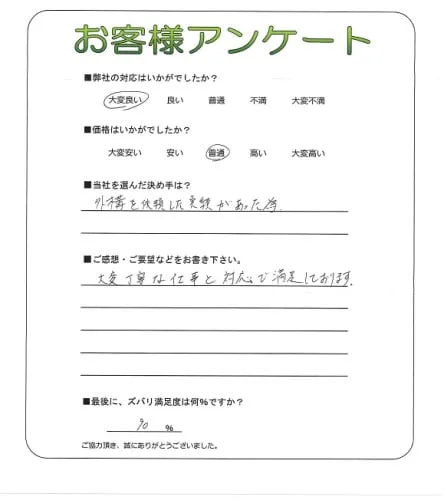 お客様アンケート
■弊社の対応はいかがでしたか?
大変良い 良い 普通 不満 大変不満
■価格はいかがでしたか?
大変安い 安い 普通 高い 大変高い
■当社を選んだ決め手は?
外構を依頼した実績があった為.
■ご感想・ご要望などをお書き下さい。
大変丁寧な仕事と対応で満足しております.
■最後に、ズバリ満足度は何%ですか?
90 %
ご協力頂き、誠にありがとうございました。